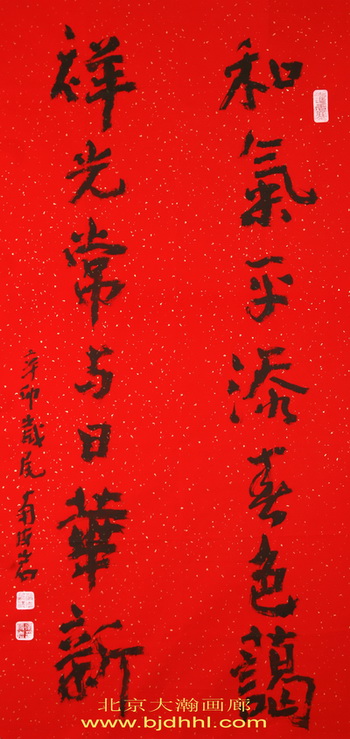 和氣平添春色藹
祥光常与日華新
辛卯歲尾
北京大瀚画廊
www.bjdhhl.com